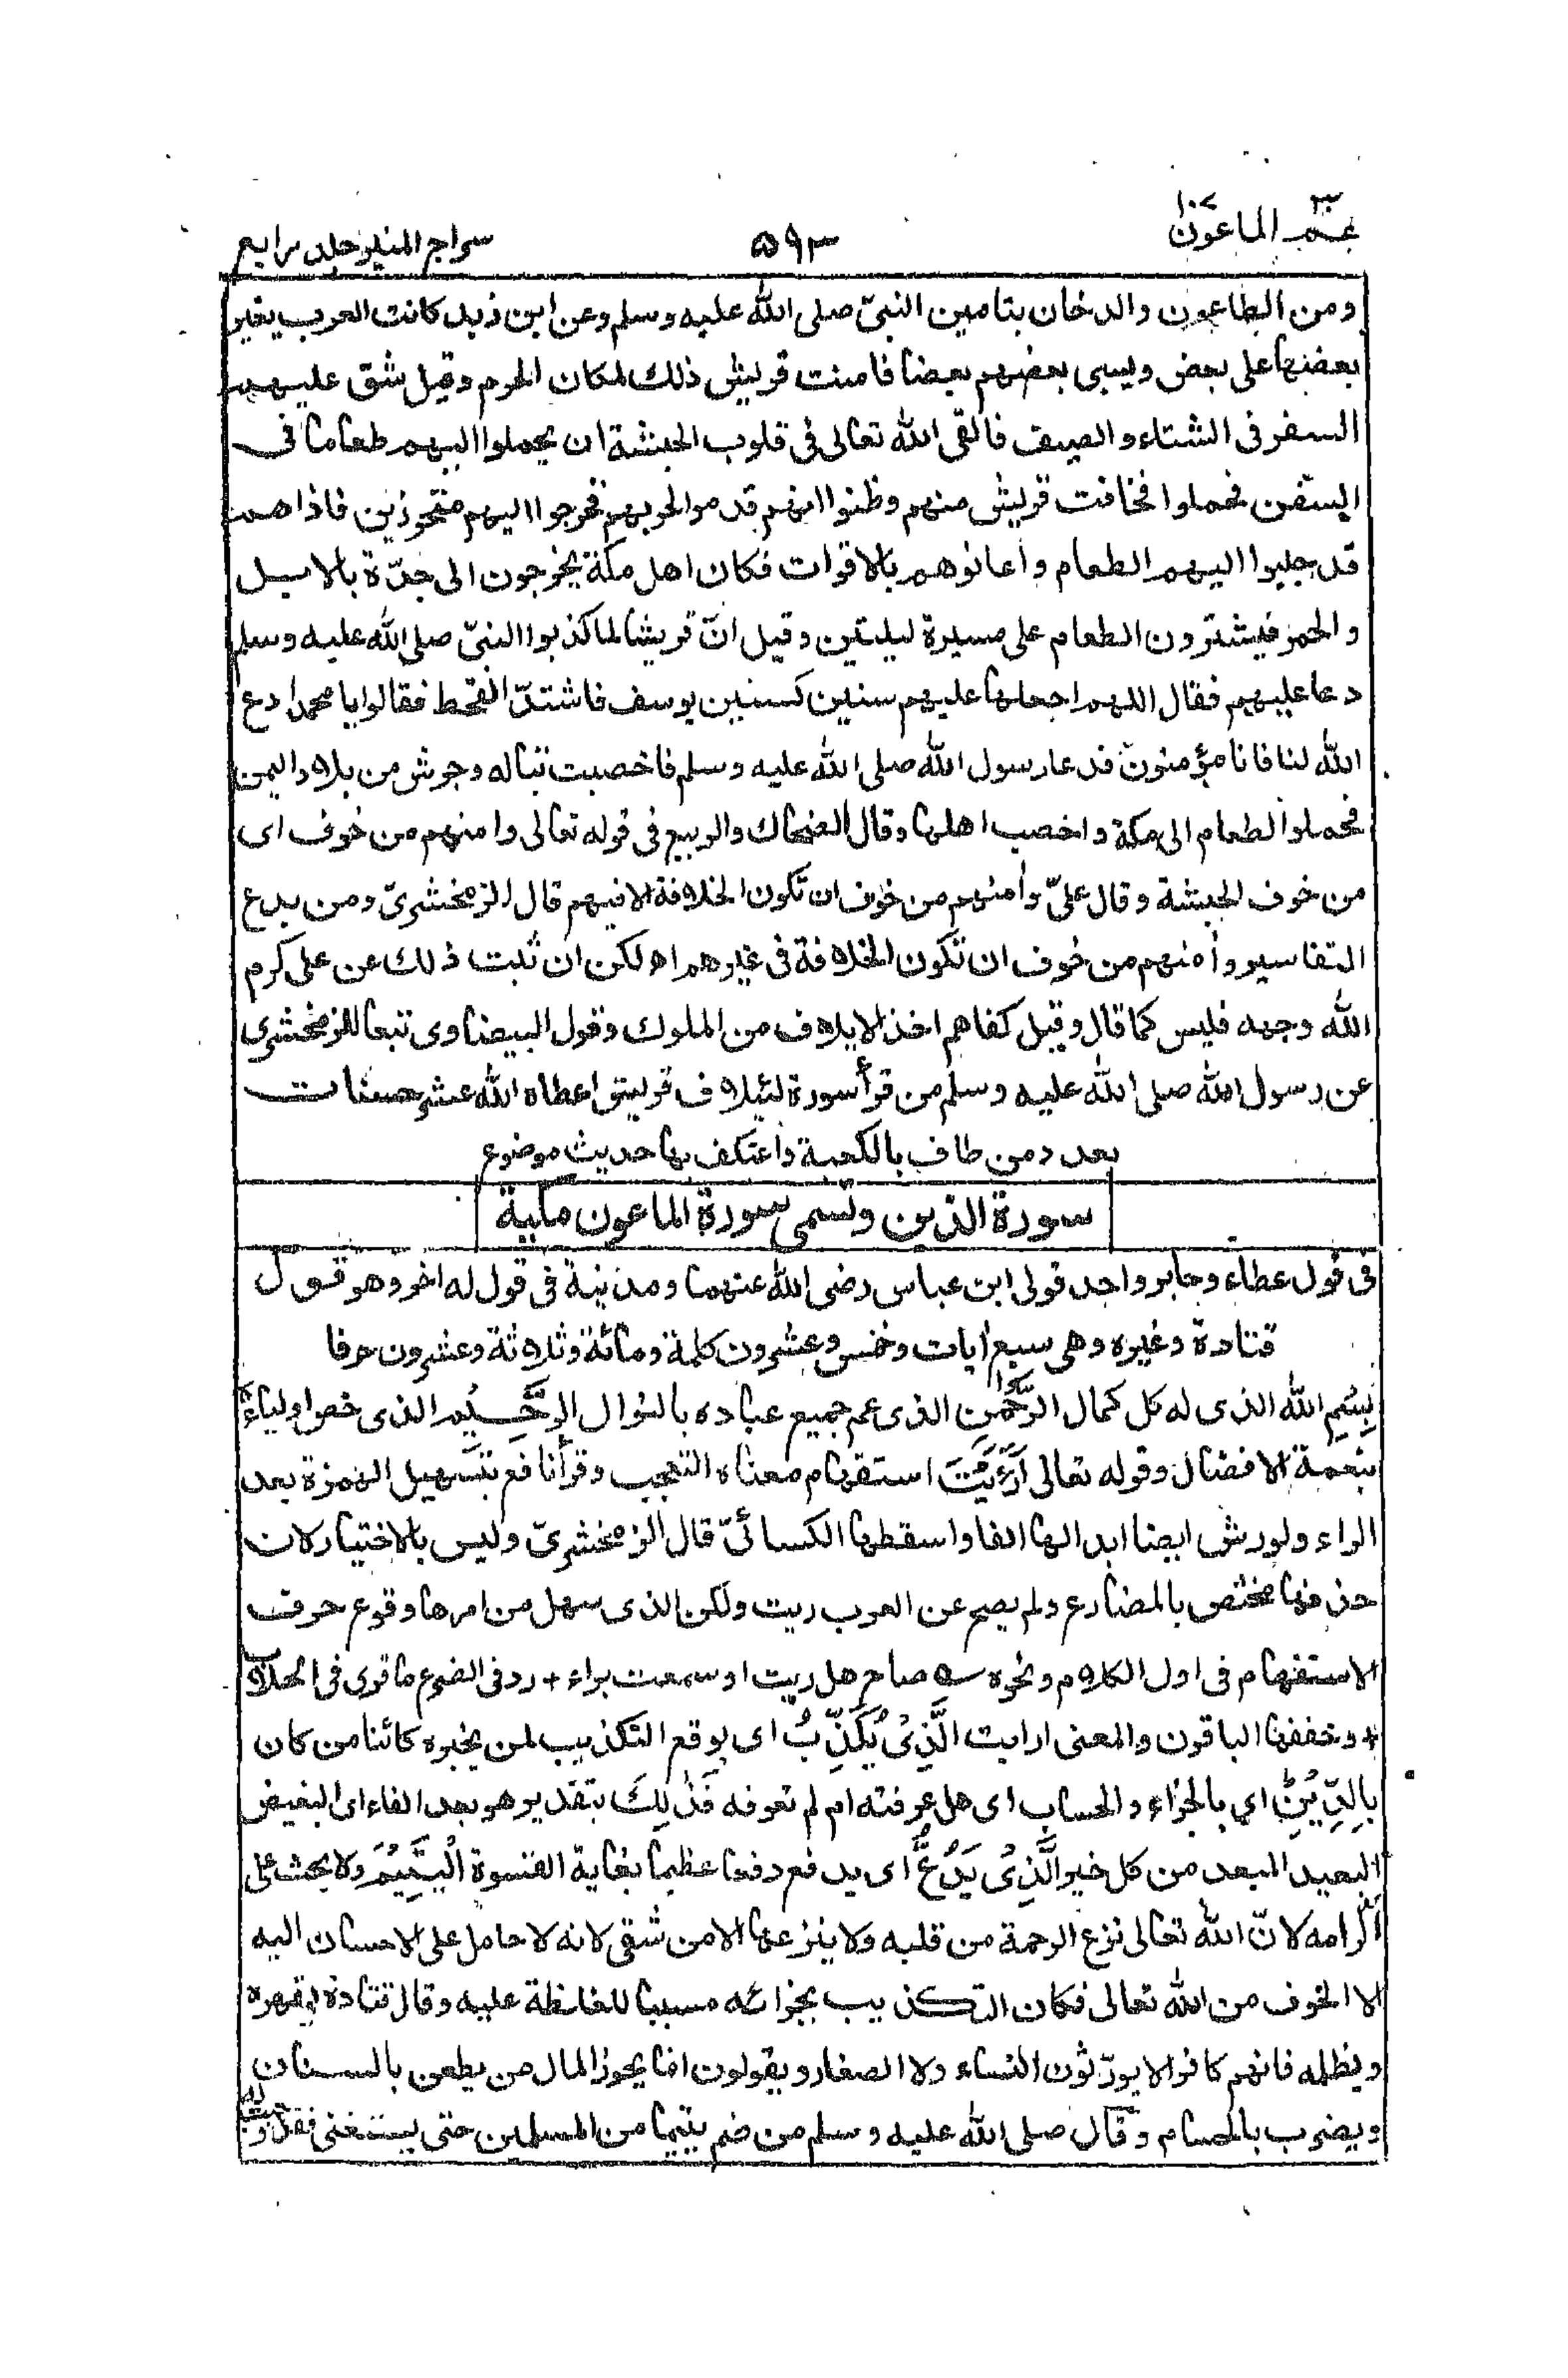 عم الماعون ١٠٧
٥٩٣
سراج المنير جلد رابع
ومن الطاعون والدخان بتامين النبيّ صلى الله عليه وسلم وعن ابن زيد كانت العرب يغير
بعضها على بعض ويسبى بعضهم بعضا فامنت قريش ذلك لمكان الحرم وقيل شق عليهم
السفر فى الشتاء والصيف فالقى الله تعالى فى قلوب الحبشة ان يحملوا اليهم طعاما فى
السفن فحملوا فخافت قريش منهم وظنوا انهم قدموا لحربهم فخرجوا اليهم متحرزين فاذا هم
قد جلبوا اليهم الطعام واعانوهم بالاقوات فكان اهل مكة يخرجون الى جدّة بالابل
والحمر فيشترون الطعام على مسيرة ليلتين وقيل انّ قريشا لما كذبوا النبىّ صلى الله عليه وسلم
دعا عليهم فقال اللهم اجعلها عليهم سنين كسنين يوسف فاشتدّ القحط فقالوا يا محمد ادع
الله لنا فانا مؤمنون فدعا رسول الله صلى الله عليه وسلم فاخصبت تباله وجرش من بلاد اليمن
فحملوا الطعام الى مكة واخصب اهلها وقال الضحاك والربيع فى قوله تعالى وامنهم من خوف اى
من خوف الحبشة وقال علىّ وأمنهم من خوف ان تكون الخلافة الا فيهم قال الزمخشرىّ ومن بدع
التفاسير وأمنهم من خوف ان تكون الخلافة فى غيرهم اه لكن ان ثبت ذلك عن على كرم
الله وجهه فليس كما قال وقيل كفاهم اخذ الايلاف من الملوك وقول البيضاوى تبعا للزمخشرى
عن رسول الله صلى الله عليه وسلم من قرأ سورة لئيلاف قريش اعطاه الله عشر حسنات
بعدد من طاف بالكعبة واعتكف بها حديث موضوع
سورة الدين وتسمى سورة الماعون مكية
فى قول عطاء وجابر واحد قولى ابن عباس رضى الله عنهما ومدنية فى قول له اخر وهو قول
قتادة وغيره وهى سبع ايات وخمس وعشرون كلمة ومائة وثلاثة وعشرون حرفا
بِسْمِ الله الذى له كل كمال الرَّحْمٰنِ الذى عم جميع عباده بالنوال الرَّحِيْمِ الذى خص اولياءه
بنعمة الافضال وقوله تعالى اَرَءَيْتَ استفهام معناه التعجب وقرأ نافع بتسهيل الهمزة بعد
الراء ولورش ايضا ابدالها الفا واسقطها الكسائىّ قال الزمخشرىّ وليس بالاختيار لان
حذفها مختص بالمضارع ولم يصح عن العرب ريت ولكن الذى سهل من امرها وقوع حرف
الاستفهام فى اول الكلام ونحوه ؎ صاح هل ريت او سمعت براء + رد فى الضرع ما قرى فى الحلاب
+ وخففها الباقون والمعنى ارايت الَّذِىْ يُكَذِّبُ اى يوقع التكذيب لمن يخبره كائنا من كان
بِالدِّيْنِ اى بالجزاء والحساب اى هل عرفته ام لم تعرفه فَذٰلِكَ بتقدير هو بعد الفاء اى البغيض
البعيد المبعد من كل خير الَّذِىْ يَدُعُّ اى يدفع دفعا عظيما بغاية القسوة الْيَتِيْمَ ولا يحث على
اكرامه لانّ الله تعالى نزع الرحمة من قلبه ولا ينزعها الا من شقى لانه لا حامل على الاحسان اليه
الا الخوف من الله تعالى فكان التكذيب بجزائه مسببا للغلظة عليه وقال قتادة يقهره
ويظلمه فانهم كانوا لا يورّثون النساء ولا الصغار ويقولون انما يحوز المال من يطعن بالسنان
ويضرب بالحسام وقال صلى الله عليه وسلم من ضم يتيما من المسلمين حتى يستغنى فقد وجبت له